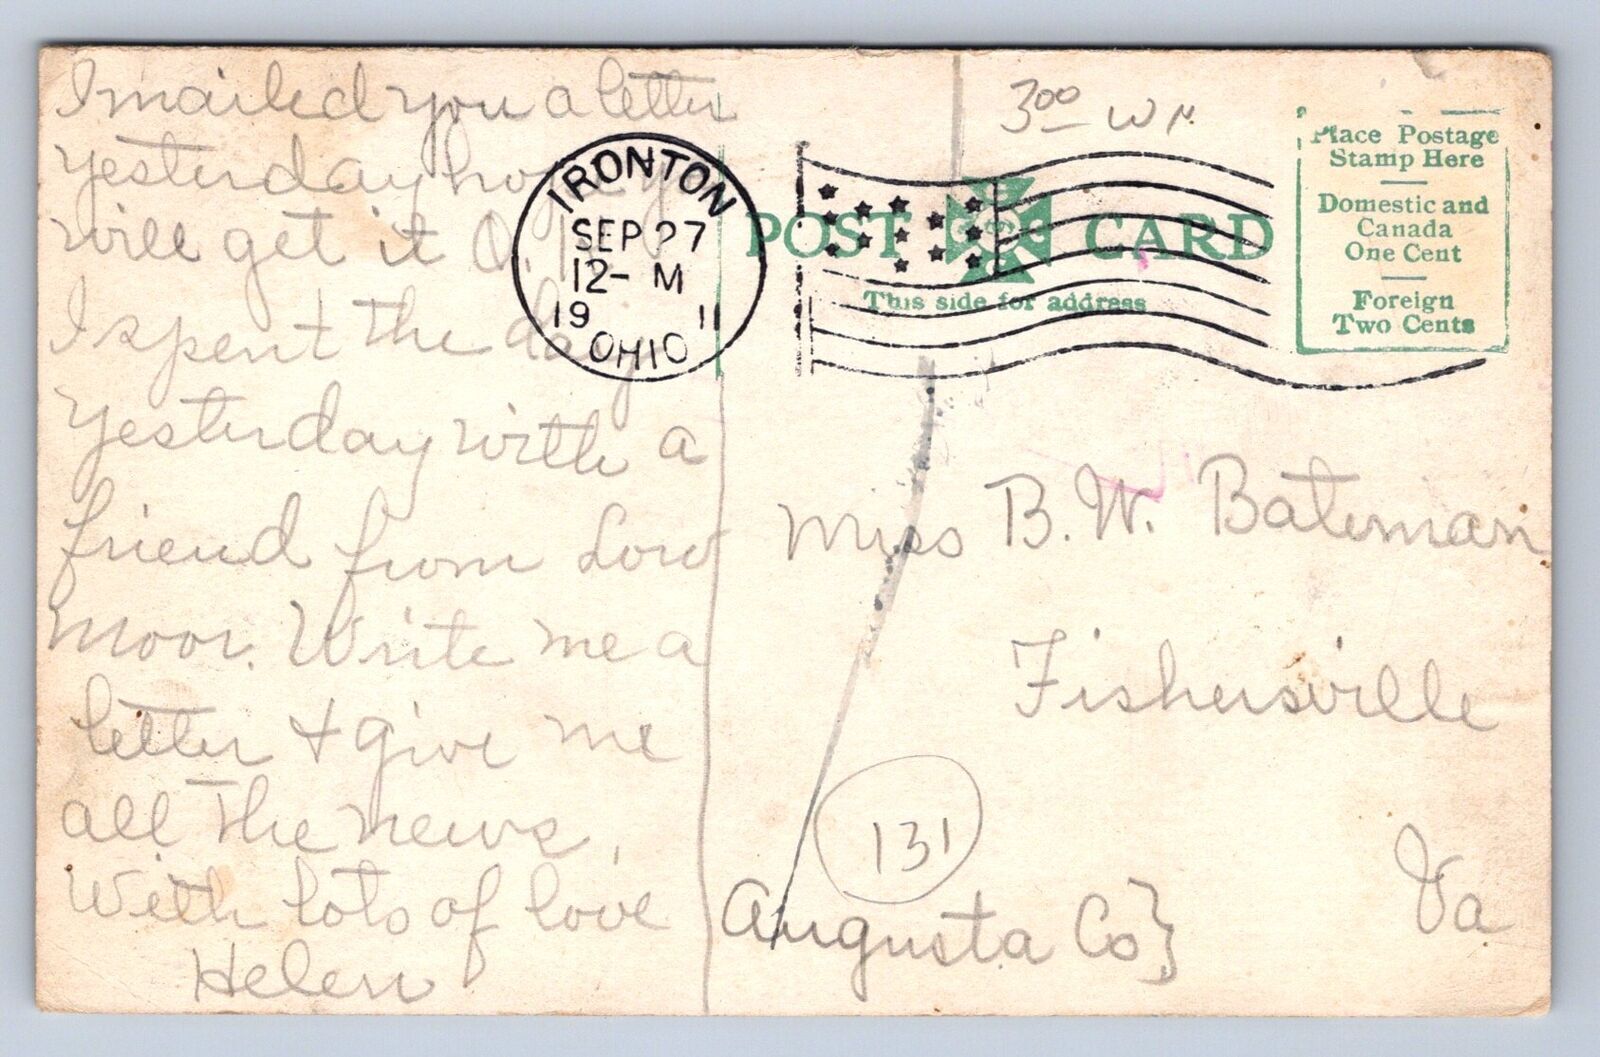 I mailed you a letter
yesterday hope y
will get it O.
I spent the day
yesterday with a
friend from Low
Moor. Write me a
letter & give me
all the news,
With lots of love
Helen
IRONTON
SEP 27
12- M
19 11
OHIO
3 00 W N.
POST CARD
This side for address
Place Postage
Stamp Here
Domestic and
Canada
One Cent
Foreign
Two Cents
Miss B. W. Bateman
Fishersville
131
Augusta Co}
Va